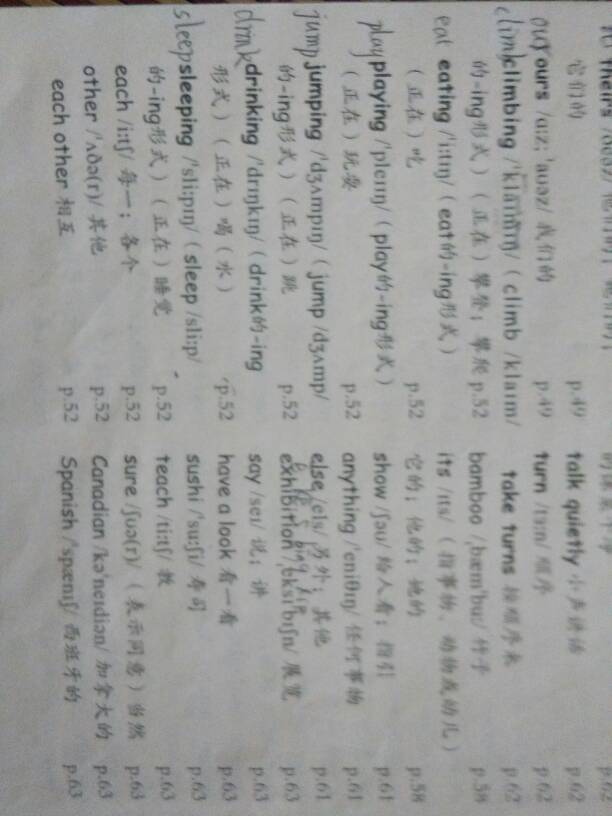 theirs
它们的 p.49
our ours /ɑːz; 'aʊəz/ 我们的 p.49
climb climbing /'klaɪmɪŋ/ (climb /klaɪm/
的-ing形式)(正在)攀登;攀爬 p.52
eat eating /'iːtɪŋ/ (eat的-ing形式)
(正在)吃 p.52
play playing /'pleɪɪŋ/ (play的-ing形式)
(正在)玩耍 p.52
jump jumping /'dʒʌmpɪŋ/ (jump /dʒʌmp/
的-ing形式)(正在)跳 p.52
drink drinking /'drɪŋkɪŋ/ (drink的-ing
形式)(正在)喝(水) p.52
sleep sleeping /'sliːpɪŋ/ (sleep /sliːp/
的-ing形式)(正在)睡觉 p.52
each /iːtʃ/ 每一;各个 p.52
other /'ʌðə(r)/ 其他 p.52
each other 相互 p.52
p.62
talk quietly 小声讲话 p.62
turn /tɜːn/ 顺序 p.62
take turns 按顺序来 p.62
bamboo /ˌbæm'buː/ 竹子 p.58
its /ɪts/ (指事物、动物或幼儿)
它的;他的;她的 p.58
show /ʃəʊ/ 给人看;指引 p.61
anything /'eniθɪŋ/ 任何事物 p.61
else /els/ 另外;其他 p.61
exhibition /ˌeksɪ'bɪʃn/ 展览 p.63
say /seɪ/ 说;讲 p.63
have a look 看一看 p.63
sushi /'suːʃi/ 寿司 p.63
teach /tiːtʃ/ 教 p.63
sure /ʃʊə(r)/ (表示同意)当然 p.63
Canadian /kə'neɪdiən/ 加拿大的 p.63
Spanish /'spænɪʃ/ 西班牙的 p.63